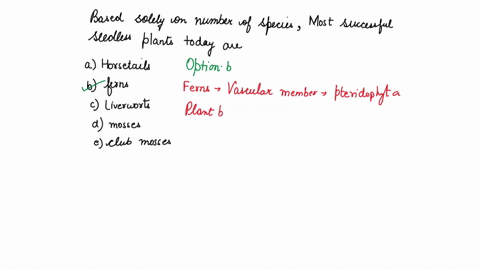 Based solely on number of species, Most successful
seedless plants today are
a) Horsetails Option.b
b) ferns Ferns → Vascular member → pteridophyta
c) Liverworts Plant b
d) mosses
e) club mosses